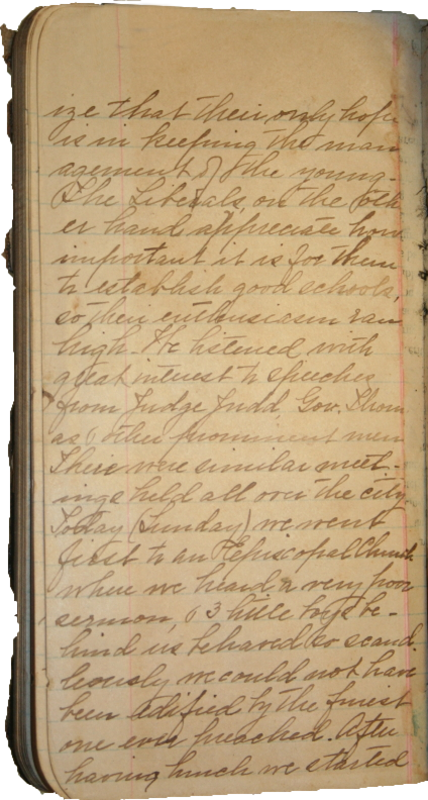 ize that their only hope
is in keeping the man
agement of the young.
The Liberals, on the oth
er hand appreciate how
important it is for them
to establish good schools,
so then enthusiasm ran
high. We listened with
great interest to speeches
from Judge Judd Gov. Thom
as & other prominent men
There were similar meet-
ings held all over the city.
Today (Sunday) we went
first to an Episcopal Church
where we heard a very poor
sermon, & 3 little boys be-
hind us behaved so scand
leously we could not have
been edified by the finest
one ever preached. After
having lunch we started